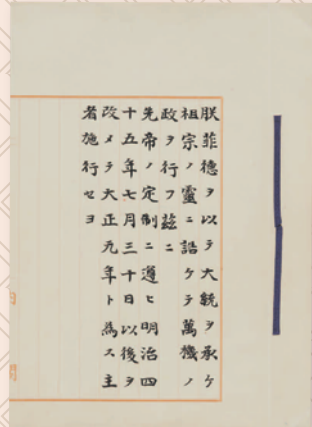 朕菲德ヲ以テ大統ヲ承ケ
祖宗ノ靈ニ誥ケテ萬機ノ
政ヲ行フ茲ニ
先帝ノ定制ニ遵ヒ明治四
十五年七月三十日以後ヲ
改メテ大正元年ト為ス主
者施行セヨ